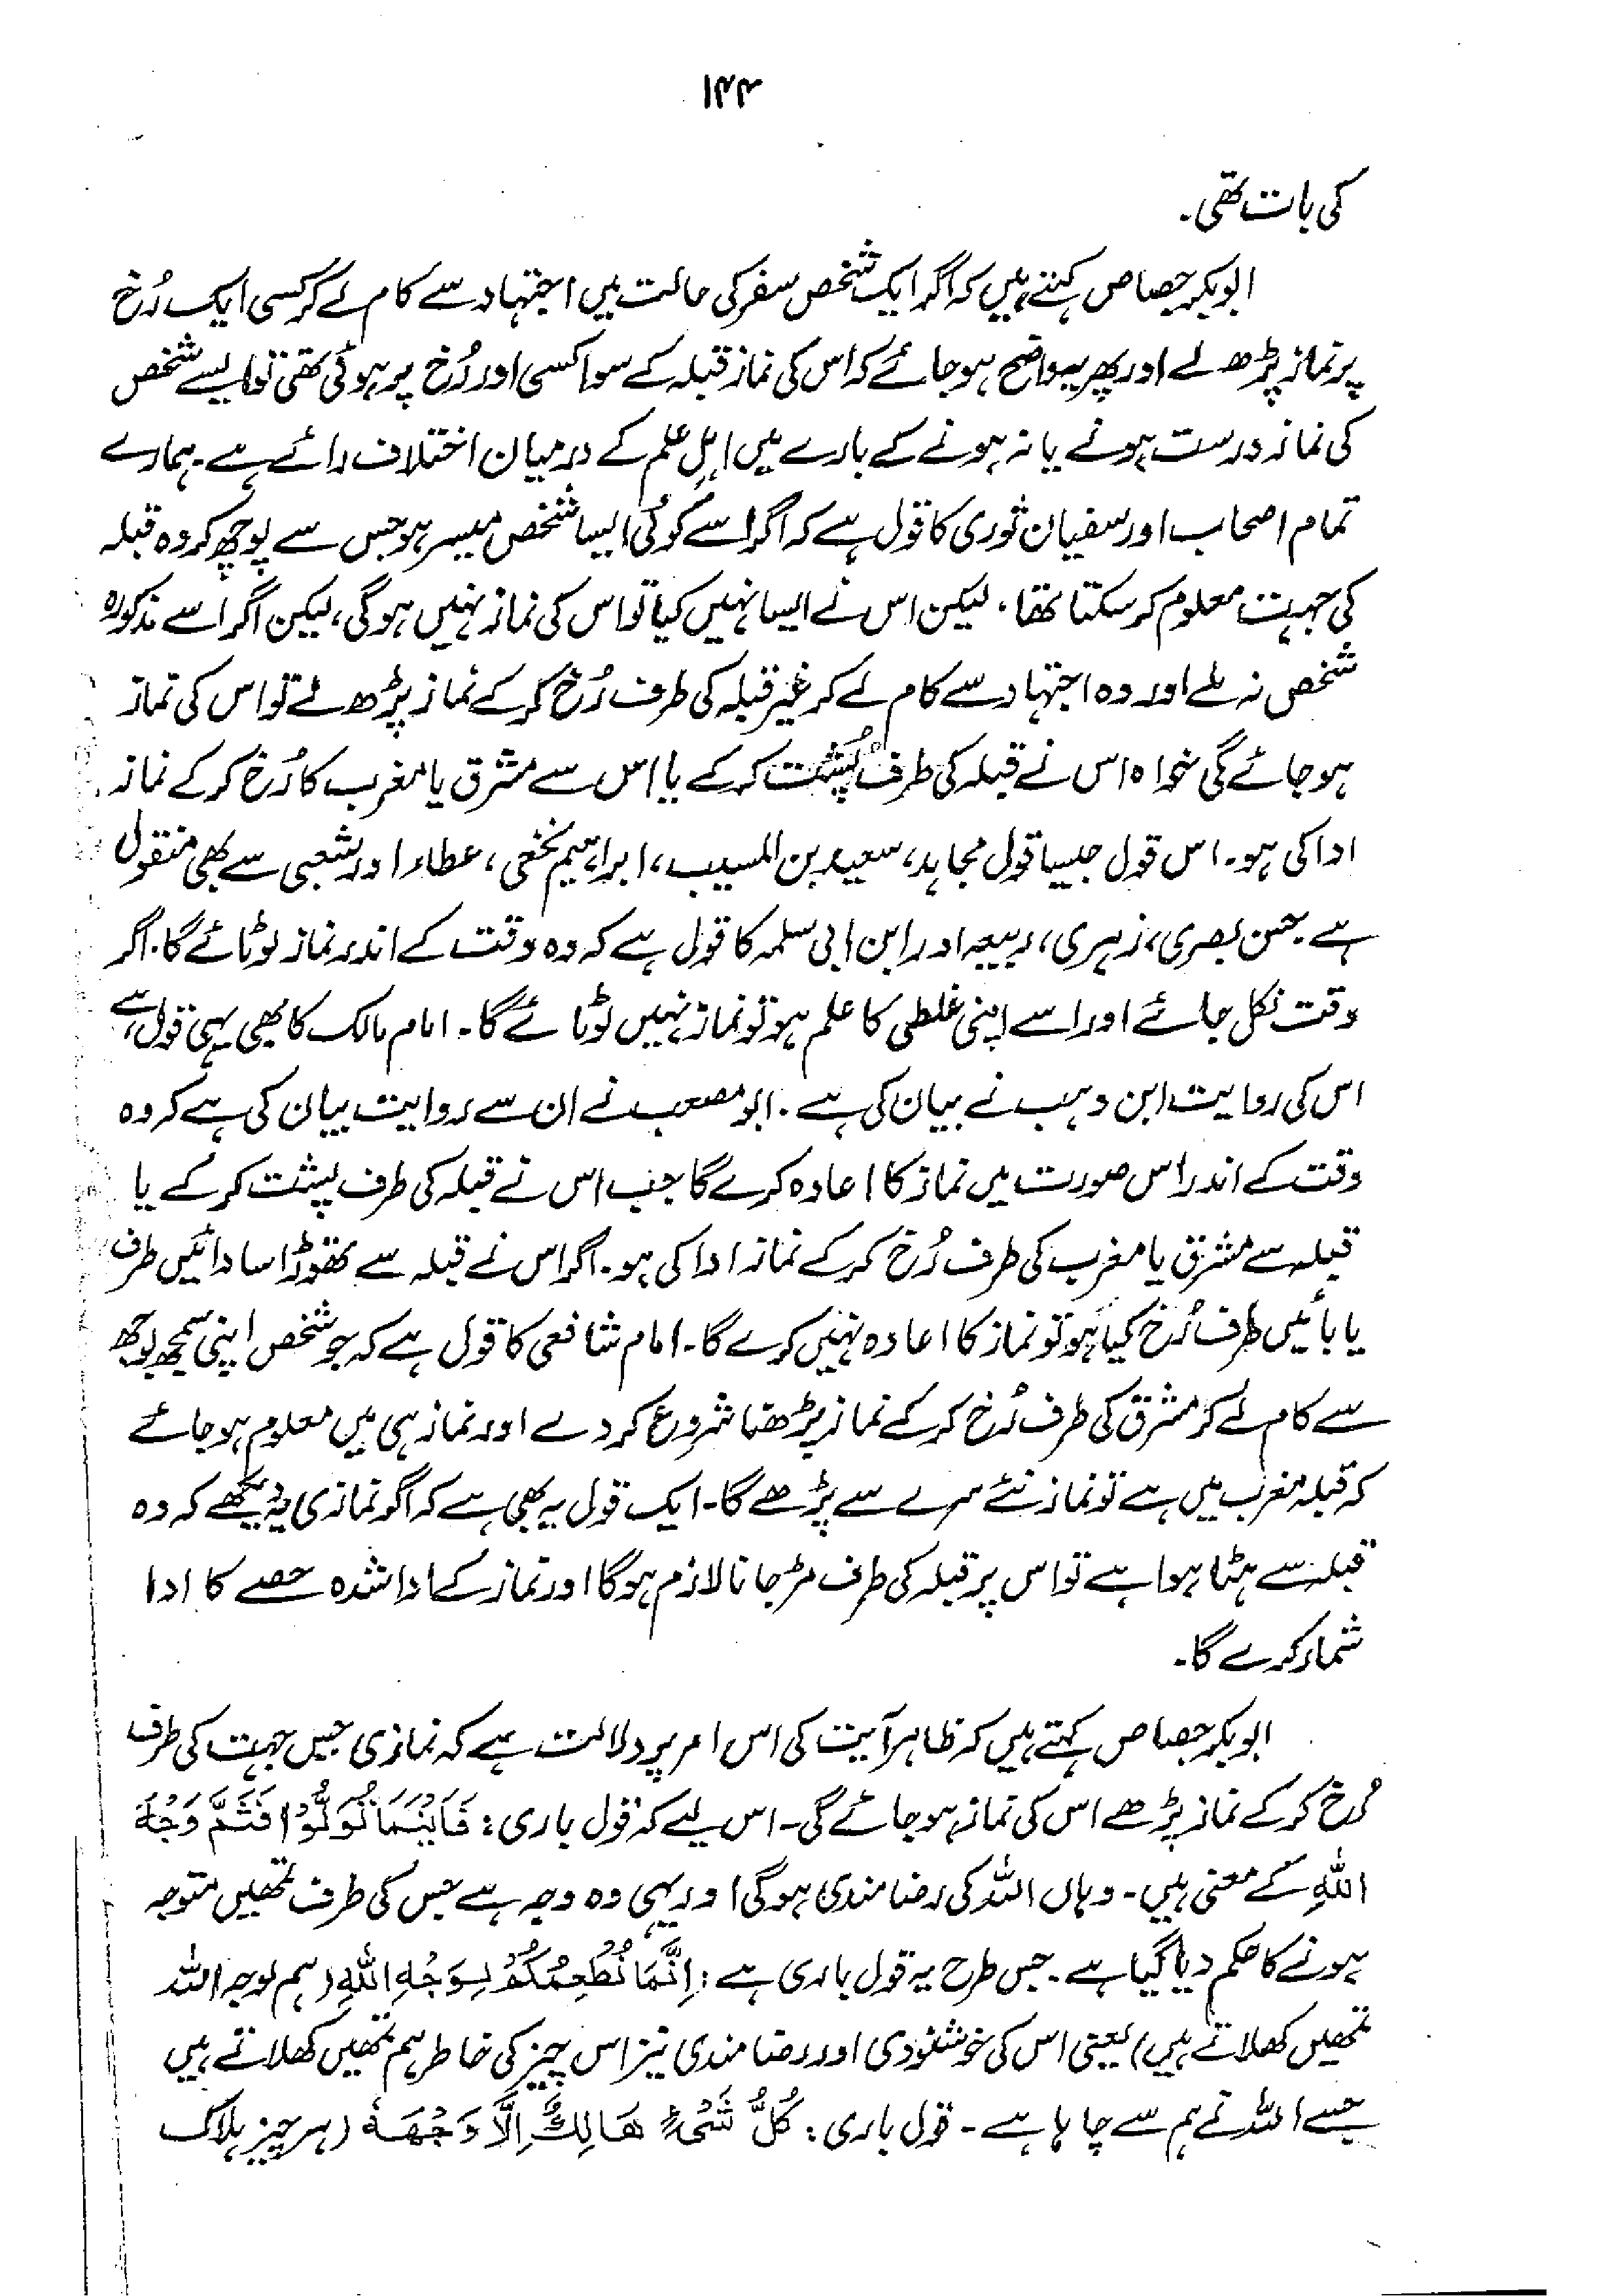 ۱۴۴
کی بات تھی۔
ابوبکر جصاص کہتے ہیں کہ اگر ایک شخص سفر کی حالت میں اجتہاد سے کام لے کر کسی ایک رُخ
پر نماز پڑھ لے اور پھر یہ واضح ہو جائے کہ اس کی نماز قبلہ کے سوا کسی اور رُخ پر ہوئی تھی تو ایسے شخص
کی نماز درست ہونے یا نہ ہونے کے بارے میں اہلِ علم کے درمیان اختلاف رائے ہے۔ ہمارے
تمام اصحاب اور سفیان ثوری کا قول ہے کہ اگر اسے کوئی ایسا شخص میسر ہو جس سے پوچھ کر وہ قبلہ
کی جہت معلوم کر سکتا تھا، لیکن اس نے ایسا نہیں کیا تو اس کی نماز نہیں ہوگی، لیکن اگر اسے مذکورہ
شخص نہ ملے اور وہ اجتہاد سے کام لے کر غیر قبلہ کی طرف رُخ کر کے نماز پڑھ لے تو اس کی نماز
ہو جائے گی خواہ اس نے قبلہ کی طرف پُشت کر کے یا اس سے مشرق یا مغرب کا رُخ کر کے نماز
ادا کی ہو۔ اس قول جیسا قول مجاہد، سعید بن المسیب، ابراہیم نخعی، عطاء اور شعبی سے بھی منقول
ہے۔ حسن بصری، زہری، ربیعہ اور ابن ابی سلمہ کا قول ہے کہ وہ وقت کے اندر نماز لوٹائے گا۔ اگر
وقت نکل جائے اور اسے اپنی غلطی کا علم ہو تو نماز نہیں لوٹائے گا۔ امام مالک کا بھی یہی قول ہے
اس کی روایت ابن وہب نے بیان کی ہے۔ ابو مصعب نے ان سے روایت بیان کی ہے کہ وہ
وقت کے اندر اس صورت میں نماز کا اعادہ کرے گا جب اس نے قبلہ کی طرف پشت کر کے یا
قبلہ سے مشرق یا مغرب کی طرف رُخ کر کے نماز ادا کی ہو۔ اگر اس نے قبلہ سے تھوڑا سا دائیں طرف
یا بائیں طرف رُخ کیا ہو تو نماز کا اعادہ نہیں کرے گا۔ امام شافعی کا قول ہے کہ جو شخص اپنی سمجھ بوجھ
سے کام لے کر مشرق کی طرف رُخ کر کے نماز پڑھنا شروع کر دے اور نماز ہی میں معلوم ہو جائے
کہ قبلہ مغرب میں ہے تو نماز نئے سرے سے پڑھے گا۔ ایک قول یہ بھی ہے کہ اگر نمازی یہ دیکھے کہ وہ
قبلہ سے ہٹا ہوا ہے تو اس پر قبلہ کی طرف مڑ جانا لازم ہوگا اور نماز کے ادا شدہ حصے کا ادا
شمار کرے گا۔
ابوبکر جصاص کہتے ہیں کہ ظاہر آیت کی اس امر پر دلالت ہے کہ نمازی جس جہت کی طرف
رُخ کر کے نماز پڑھے اس کی نماز ہو جائے گی۔ اس لیے کہ قول باری: فَاَیْنَمَا تُوَلُّوْا فَثَمَّ وَجْهُ
اللّٰہِ کے معنی ہیں۔ وہاں اللہ کی رضامندی ہوگی اور یہی وہ وجہ ہے جس کی طرف تمھیں متوجہ
ہونے کا حکم دیا گیا ہے۔ جس طرح یہ قول باری ہے: اِنَّمَا نُطْعِمُکُمْ لِوَجْہِ اللّٰہِ (ہم لوجہ اللہ
تمھیں کھلاتے ہیں) یعنی اس کی خوشنودی اور رضامندی نیز اس چیز کی خاطر ہم تمھیں کھلاتے ہیں
جسے اللہ نے ہم سے چاہا ہے۔ قول باری: کُلُّ شَیْءٍ ھَالِكٌ اِلَّا وَجْھَهٗ (ہر چیز ہلاک